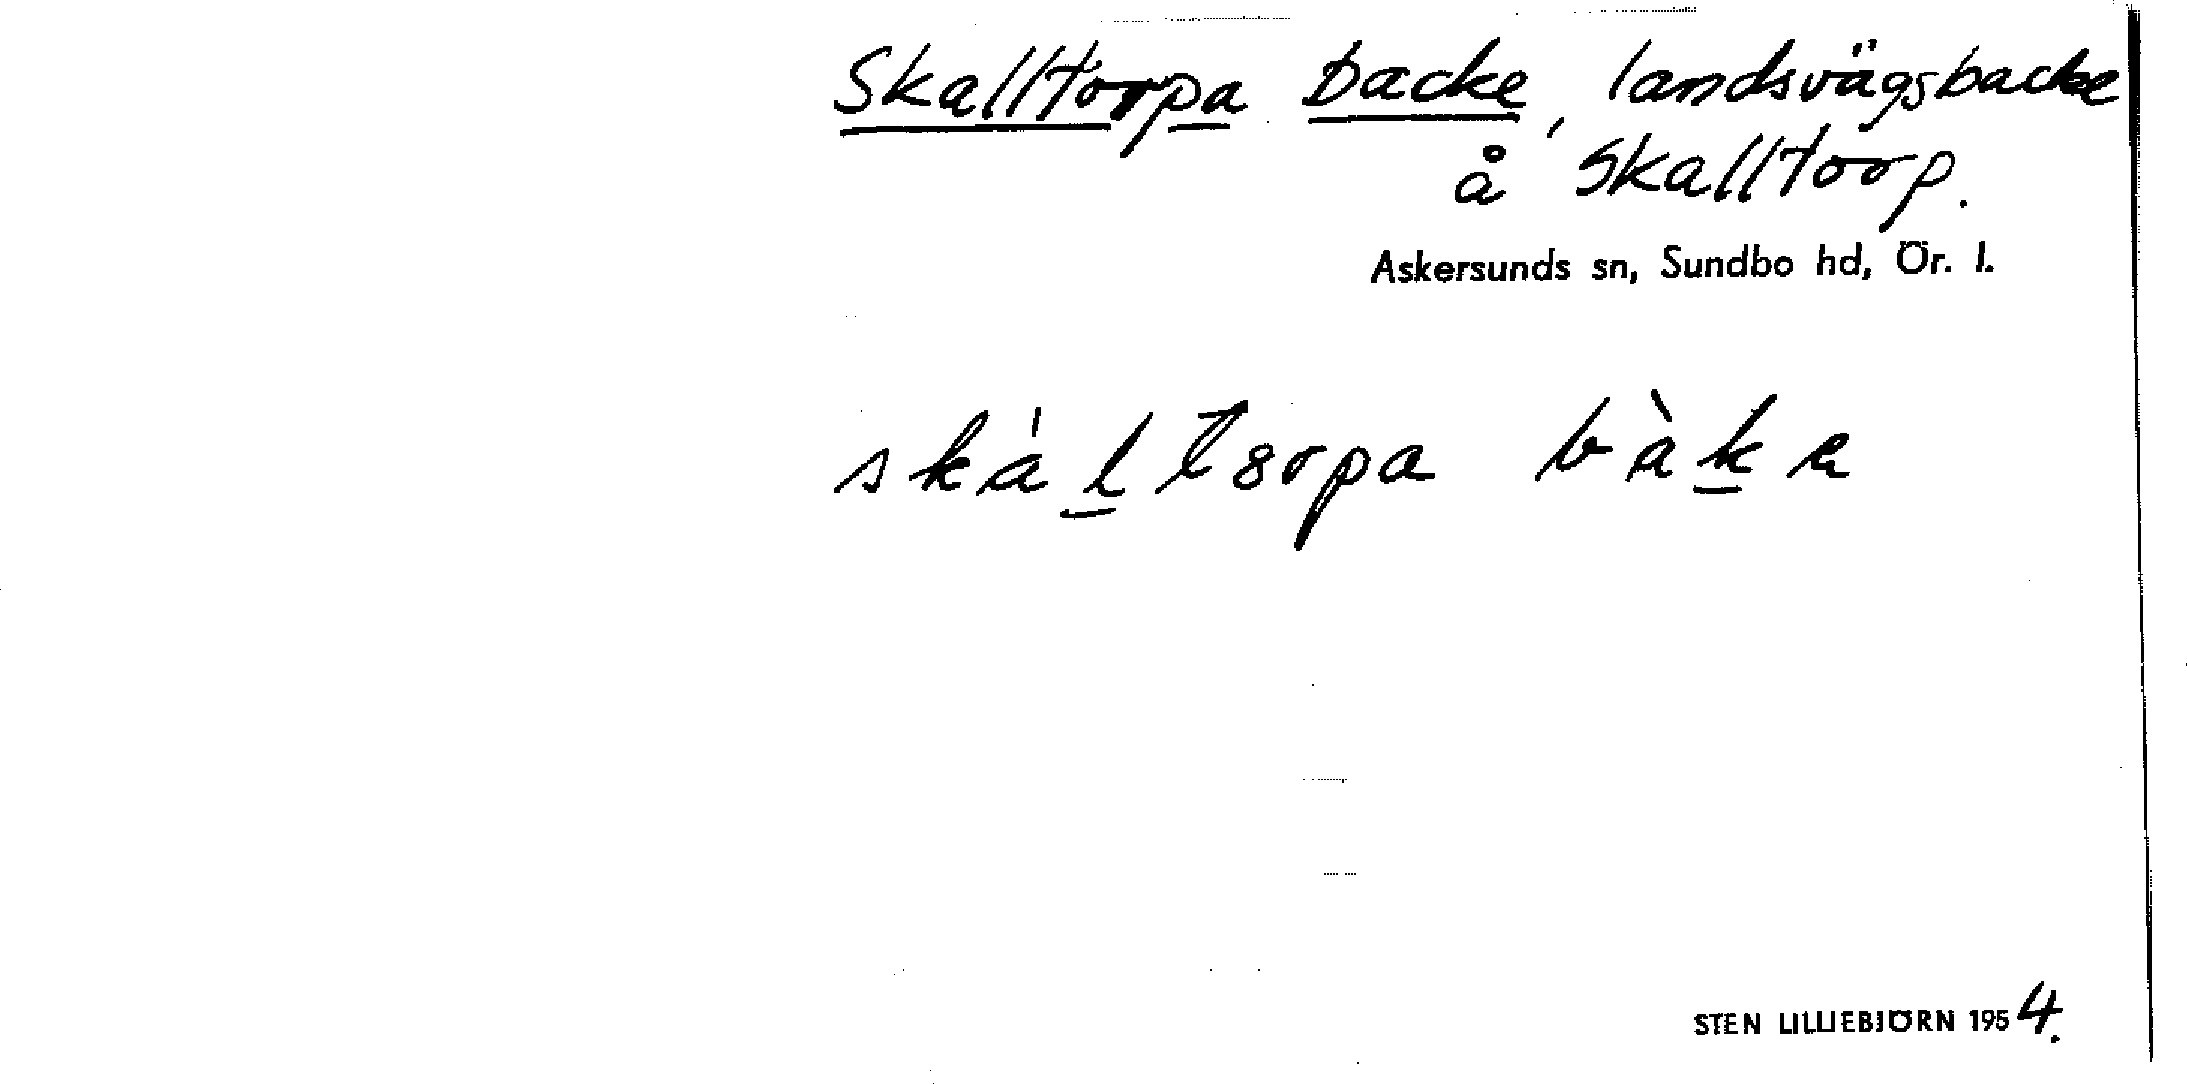 Skalltorpa backe, landsvägsbacke
å Skalltorp.
Askersunds sn, Sundbo hd, Ör. l.
skál̲ torpa bàk̲a
STEN LILLIEBJÖRN 1954.